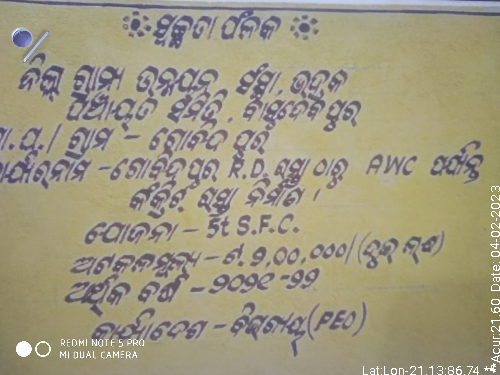 ସ୍ୱଚ୍ଛତା ଫଳକ
ଜିଲ୍ଲା ଗ୍ରାମ୍ୟ ଉନ୍ନୟନ ସଂସ୍ଥା, ଭଦ୍ରକ
ପଞ୍ଚାୟତ ସମିତି, ବାସୁଦେବପୁର
ଗା.ପ./ ଗ୍ରାମ - ଗୋବିନ୍ଦପୁର
କାର୍ଯ୍ୟର ନାମ - ଗୋବିନ୍ଦପୁର R.D. ରାସ୍ତା ଠାରୁ AWC ପର୍ଯ୍ୟନ୍ତ
କଂକ୍ରିଟ୍ ରାସ୍ତା ନିର୍ମାଣ ।
ଯୋଜନା - 5t S.F.C.
ଅଟକଳ ମୂଲ୍ୟ - ଟ. ୨,୦୦,୦୦୦/ (ଦୁଇ ଲକ୍ଷ)
ଆର୍ଥିକ ବର୍ଷ - ୨୦୨୧ -୨୨
କାର୍ଯ୍ୟାଦେଶ - ବିଭାଗୀୟ (PEO)
REDMI NOTE 5 PRO
MI DUAL CAMERA
Lat:Lon-21.13:86.74
**Acur:21.60 Date: 04-02-2023